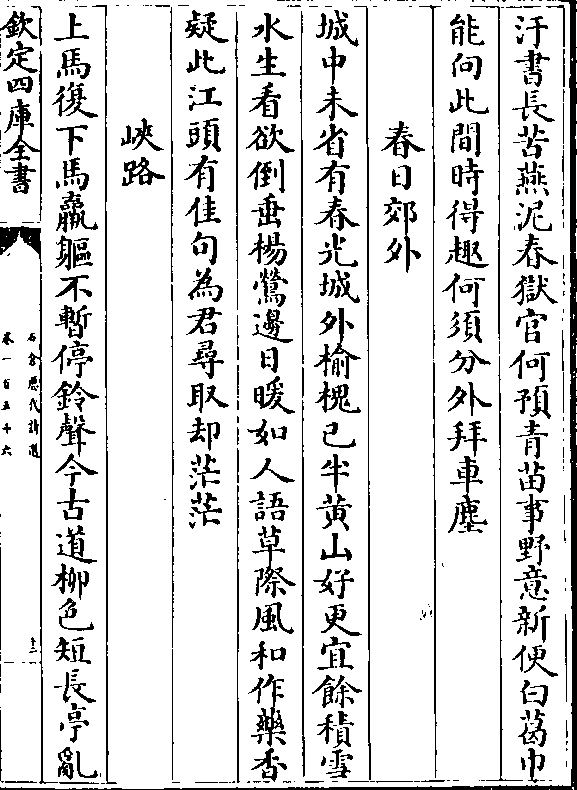 汙書長苦燕泥春獄官何預青苗事野意新便白葛巾
能向此間時得趣何須分外拜車塵
春日郊外
城中未省有春光城外榆槐已半黄山好更宜餘積雪
水生看欲倒垂楊鶯邊日暖如人語草際風和作藥香
疑此江頭有佳句為君尋取却茫茫
峽路
上馬復下馬羸軀不暫停鈴聲今古道柳色短長亭亂
欽定四庫全書
石倉歷代詩選
卷一百五十六
十二